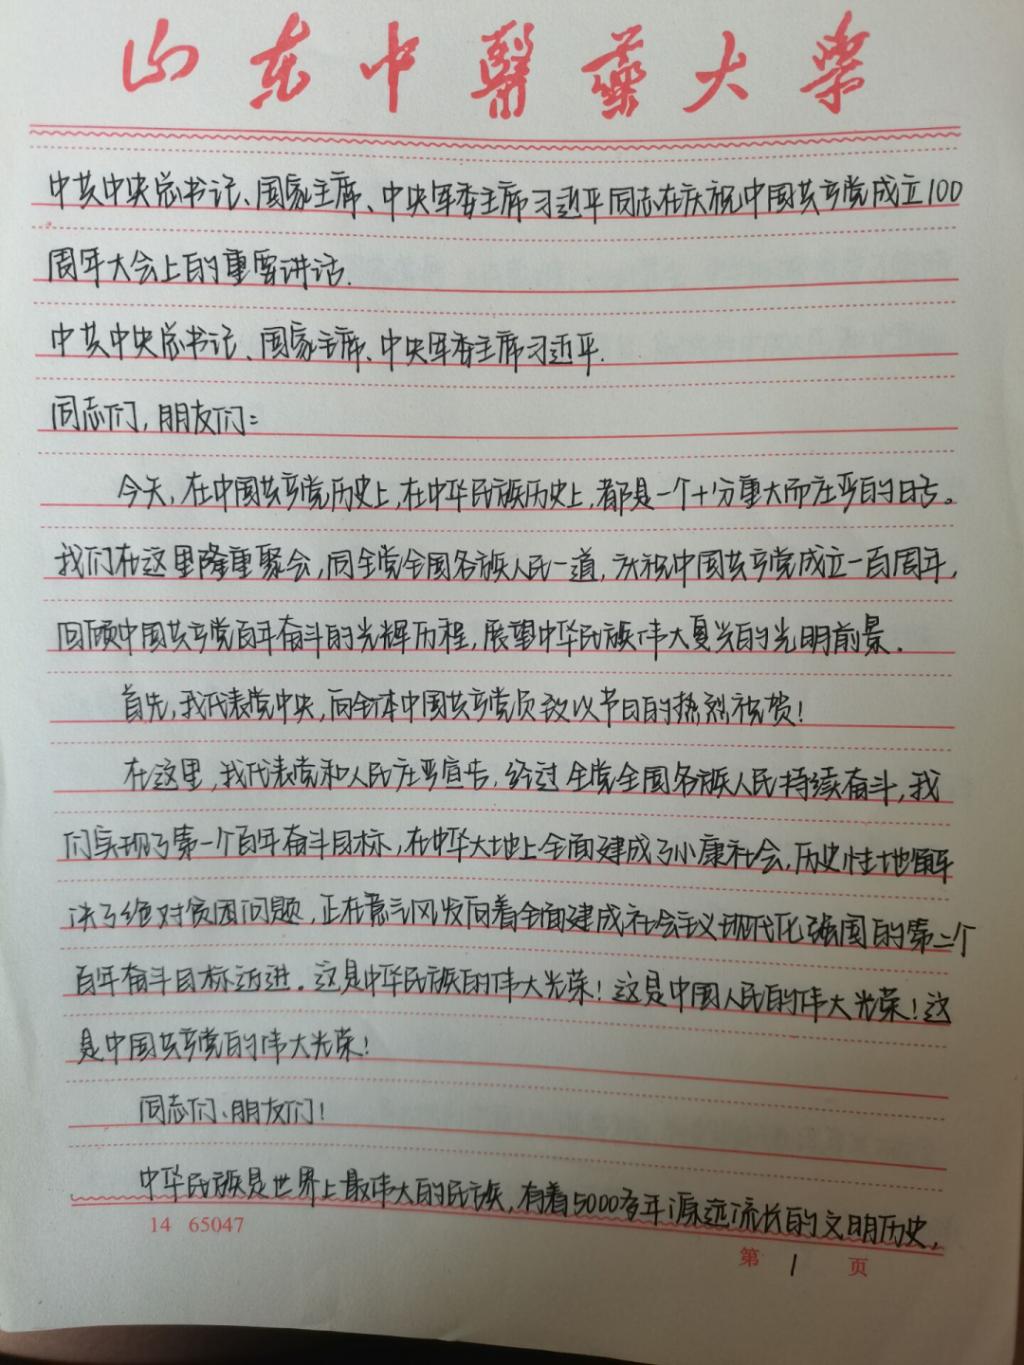 山东中医药大学
中共中央总书记、国家主席、中央军委主席习近平同志在庆祝中国共产党成立100
周年大会上的重要讲话.
中共中央总书记、国家主席、中央军委主席习近平.
同志们,朋友们:
今天,在中国共产党历史上,在中华民族历史上,都是一个十分重大而庄严的日子。
我们在这里隆重聚会,同全党全国各族人民一道,庆祝中国共产党成立一百周年,
回顾中国共产党百年奋斗的光辉历程,展望中华民族伟大复兴的光明前景.
首先,我代表党中央,向全体中国共产党员致以节日的热烈祝贺!
在这里,我代表党和人民庄严宣告,经过全党全国各族人民持续奋斗,我
们实现了第一个百年奋斗目标,在中华大地上全面建成了小康社会,历史性地解
决了绝对贫困问题,正在意气风发向着全面建成社会主义现代化强国的第二个
百年奋斗目标迈进。这是中华民族的伟大光荣!这是中国人民的伟大光荣!这
是中国共产党的伟大光荣!
同志们、朋友们!
中华民族是世界上最伟大的民族,有着5000多年源远流长的文明历史,
14 65047
第 1 页